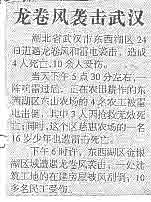 龙卷风袭击武汉
湖北省武汉市东西湖区24
日遭遇龙卷风和雷电袭击，造成
4人死亡，10余人受伤。
当天下午5点30分左右，一
阵鸣雷过后，正在农田耕作的东
西湖区六山农场的4名农工被雷
电击倒，其中3人因抢救无效死
亡；同时，这个区慈惠农场的一名
16岁少年也遭雷击死亡。
下午6时许，东西湖区金银
湖区域遭遇龙卷风袭击，一处建
筑工地的在建房屋被刮倒，10
多名民工受伤。